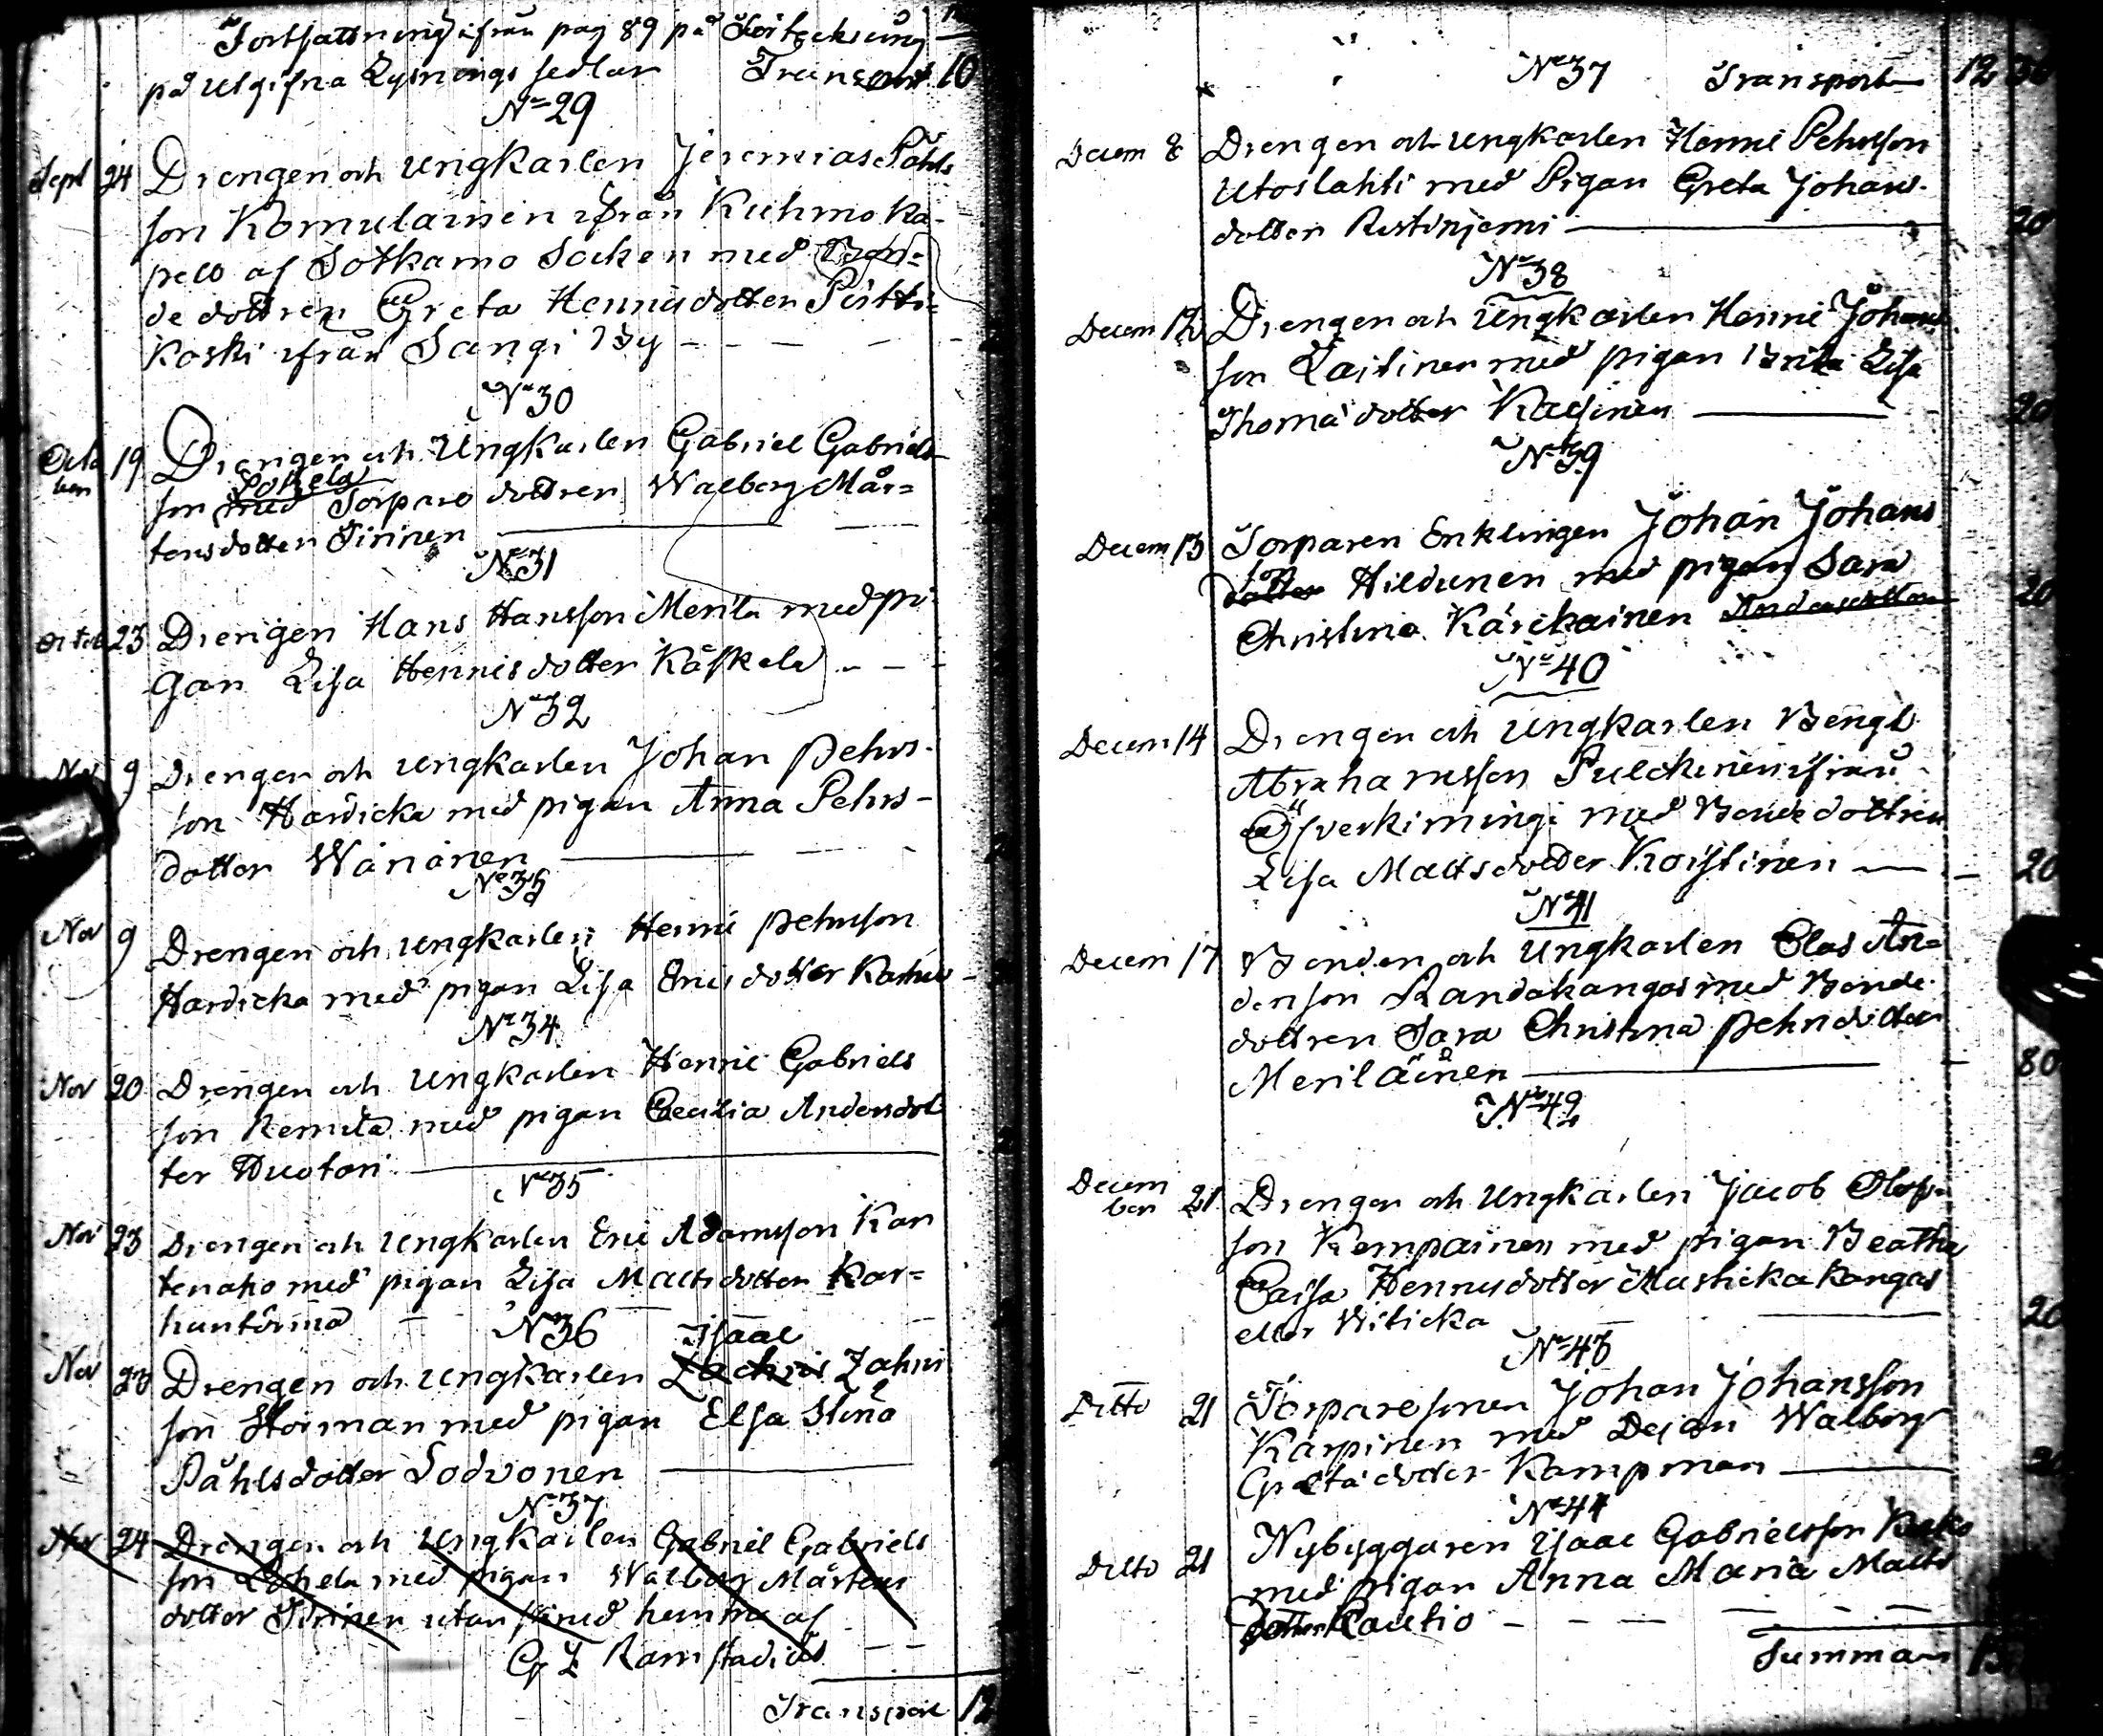 Fortsättning ifrån pag 89 på Förteckning
på utgifna Lysnings sedlar Transport 10
No 29
Sept 24 Drengen och Ungkarlen Jeremias Påhls
son Komulainen ifrån Kuhmo Ka-
pell af Sotkamo Socken med Bon-
de dottren Greta Henricsdotter Pirtti-
koski ifrån Sangi By
No 30
Octo
ber 19 Drengen och Ungkarlen Gabriel Gabriels
Lohela
son med Torpare dottren Walborg Mår=
tensdotter Tirinen
No 31
Octob 23 Drengen Hans Hansson Merila med pi-
gan Lisa Henricsdotter Käskela
No 32
Nov 9 Drengen och Ungkarlen Johan Pehrs-
son Hardicka med pigan Anna Pehrs-
dotter Wänänen
No 33
Nov 9 Drengen och Ungkarlen Henric Pehrsson
Hardicka med pigan Lisa Ericsdotter
No 34
Nov 20 Drengen och Ungkarlen Henric Gabriels
son Remula med pigan Caecilia Andersdot
ter Huotari
No 35
Nov 23 Drengen och Ungkarlen Eric Adamsson Kan
tenaho med pigan Lisa Mattsdotter Kar=
huntörmä
No 36 Isaac
Nov 23 Drengen och Ungkarlen Zachris Zachris
son Storman med pigan Elsa Stina
Påhlsdotter Lodvonen
No 37
Nov 24 Drengen och Ungkarlen Gabriel Gabriels
son Lohela med pigan Walborg Mårtens
dotter Tirinen utan hemma af
G Z Ramstadius
Transport 12
No 37 Transport 12
Decem 8 Drengen och Ungkarlen Henric Pehrsson
Utoslahti med Pigan Greta Johans-
dotter Ristinjemi 20
No 38
Decem 12 Drengen och Ungkarlen Henric Johans
son Laitinen med pigan Brita Lisa
Thomæ dotter Kaisinen 20
No 39
Decem 13 Torparen Enklingen Johan Johans
son
dotter Hildunen med pigan Sara
Christina Kärckäinen Andersdotter 20
No 40
Decem 14 Drengen och Ungkarlen Bengt
Abrahamsson Pulckinen ifrån
Öfverkimingi med Bondedottren
Lisa Mattsdotter Koistinen 20
No 41
Decem 17 Bonden och Ungkarlen Elas An=
dersson Kandakangas med Bonde
dottren Sara Christina Pehrsdotter
Meriläinen 80
No 42
Decem
ber 21 Drengen och Ungkarlen Jacob Olofs-
son Kempainen med pigan Beatha
Caisa Henricsdotter Mustickakangas
eller Witicka 20
No 43
Ditto 21 Torparesonen Johan Johansson
Kärpinen med Dejan Walborg
Grelsdotter Kampman
No 44
Ditto 21 Nybyggaren Isaac Gabrielsson
med pigan Anna Maria Matts
dotter Rautio
Summan